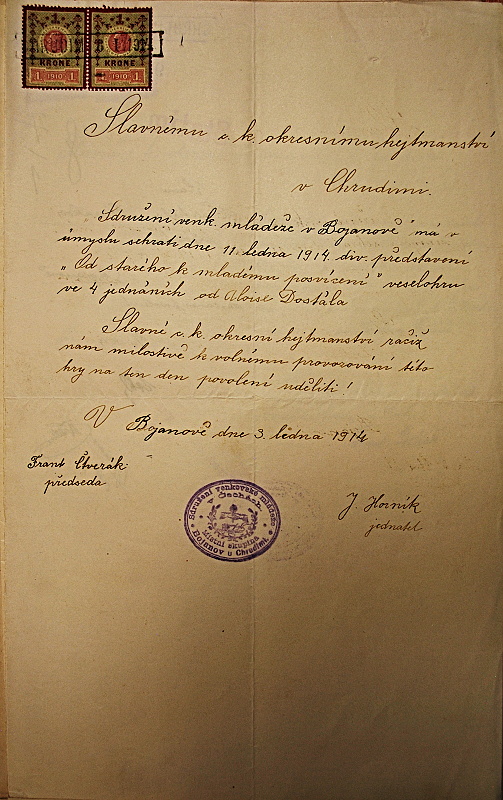 1 1
KRONE KRONE
1 1910 1 1910 1
Slavnému c. k. okresnímu hejtmanství
v Chrudimi.
Sdružení venk. mládeže v Bojanově má v
úmyslu sehrati dne 11. ledna 1914. div. představení
„Od starého k mladému posvícení" veselohru
ve 4 jednáních od Aloise Dostála
Slavné c. k. okresní hejtmanství račiž
nám milostivě k volnému provozování této
hry na ten den povolení uděliti!
V Bojanově dne 3. ledna 1914
Frant Čtverák
předseda
J. Horník
jednatel
Sdružení venkovské mládeže
v Čechách
Místní skupina
Bojanov u Chrudimi.